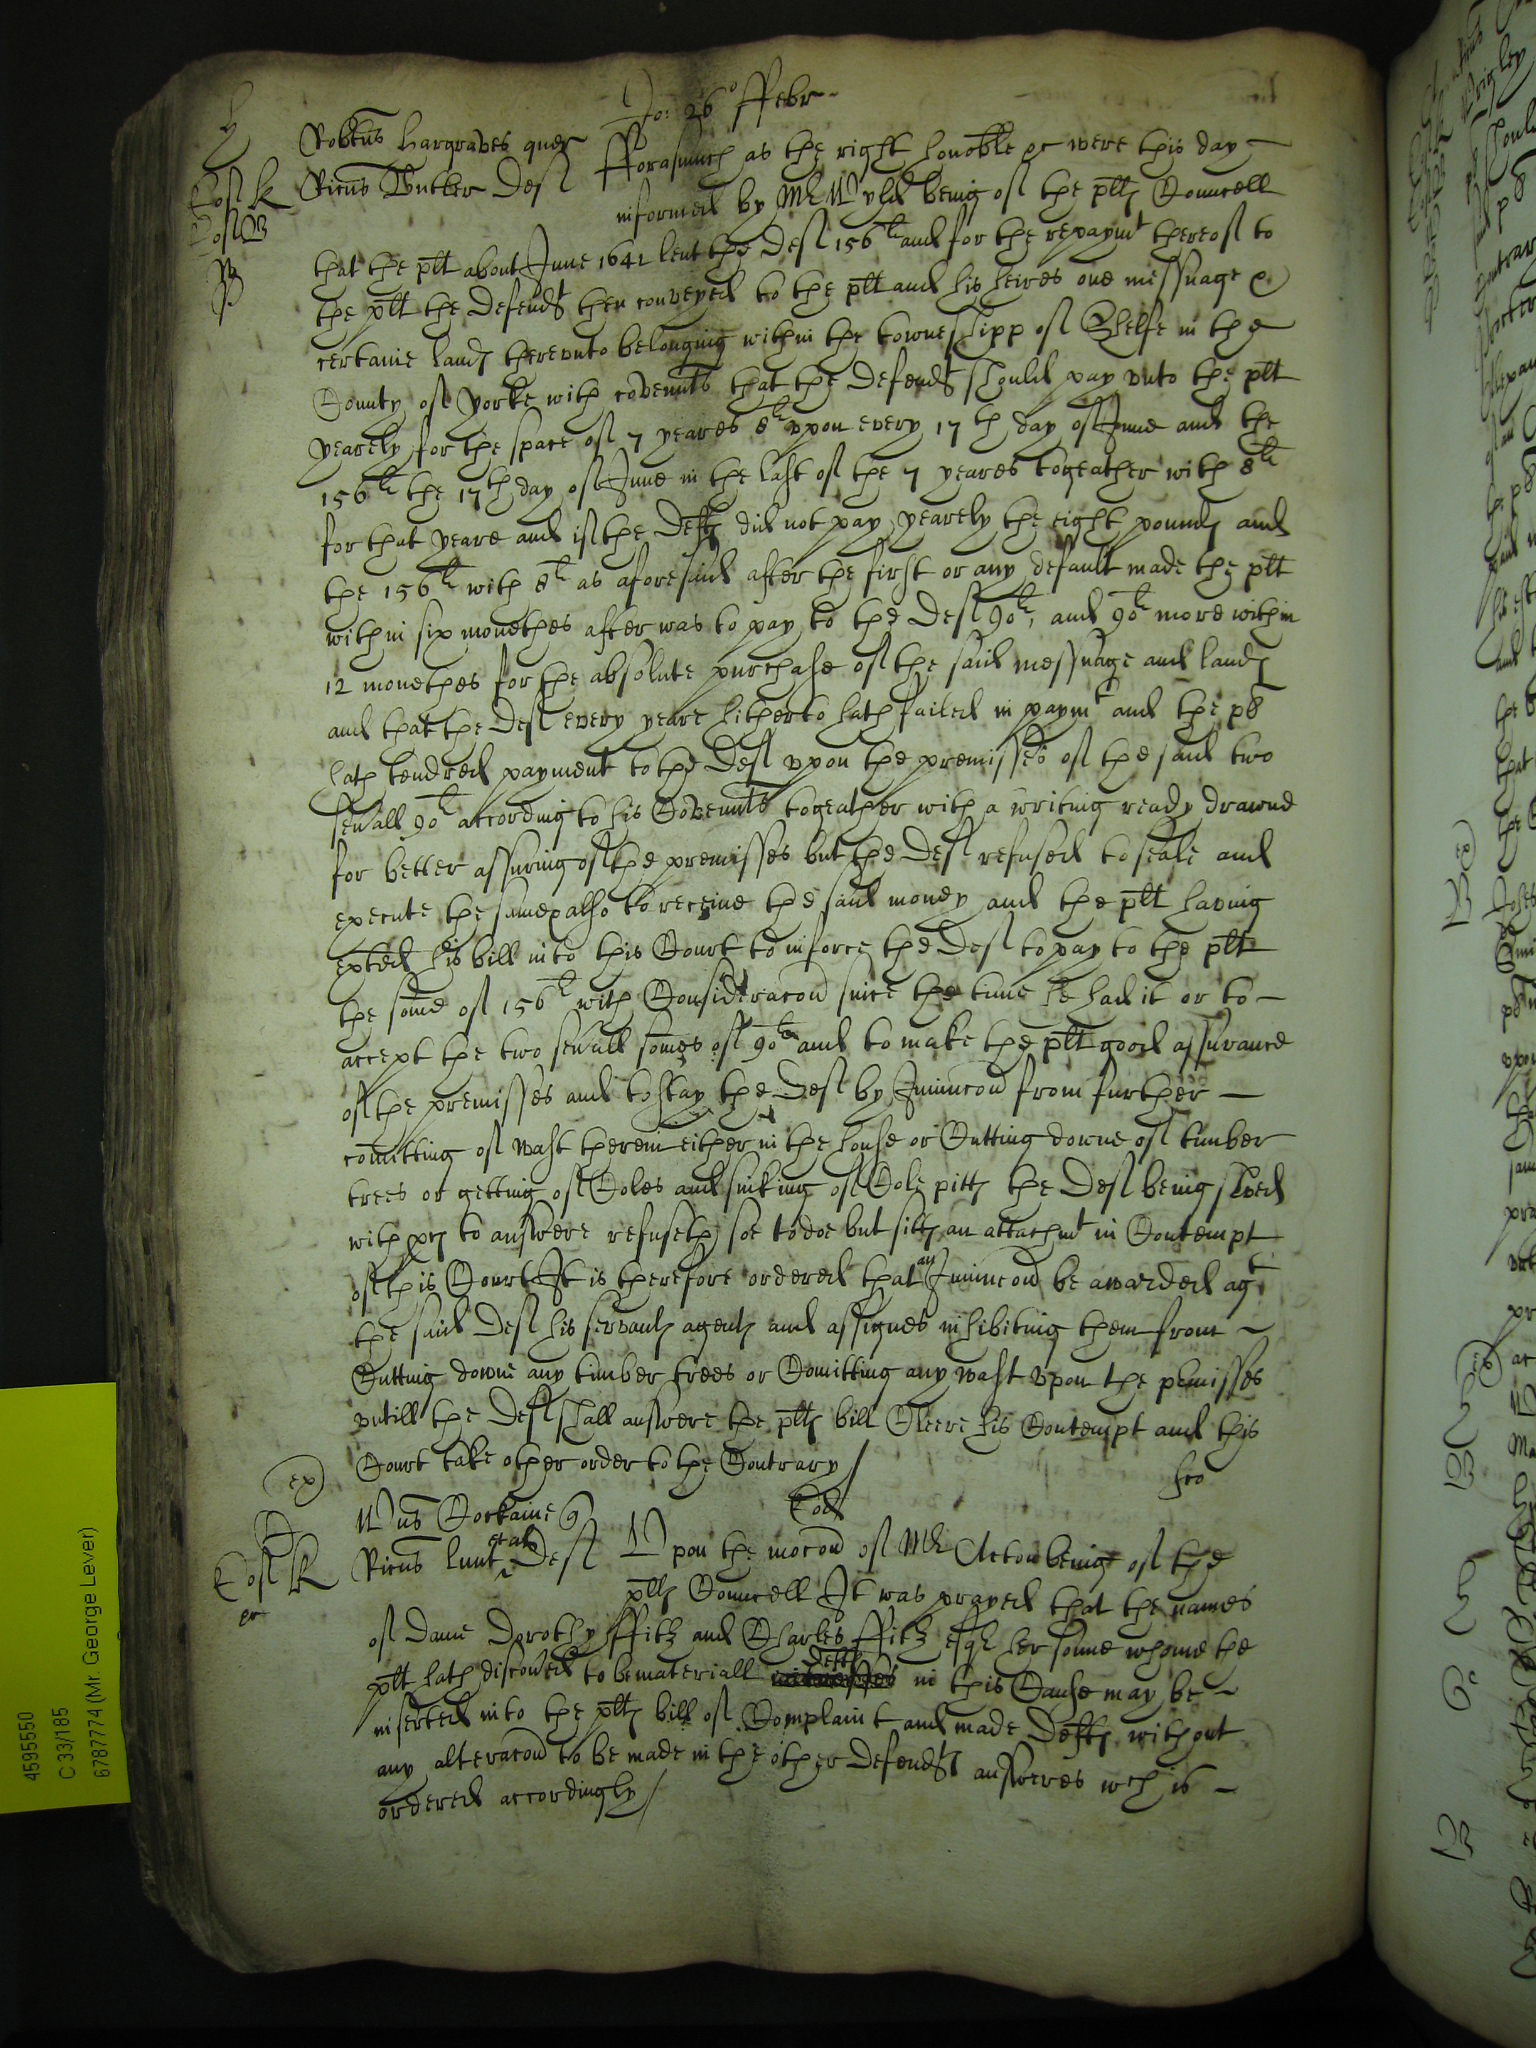 Jo: 26° ffebr
H
Robtus Hargraves quer
fforasmuch as the right honoble &c were this day
Ricus Butler Def
informed by Mr Wyld being of the plts Councell
that the plt about June 1641 lent the Def 156li and for the repaymt thereof to
the plt the defendt then conveyed to the plt and his heires one messuage &
certaine lands therevnto belonging within the towneshipp of Shelfe in the
County of Yorke with covennts that the defendt should pay vnto the plt
yearely for the space of 7 yeares 8li vpon every 17th day of June and the
156li the 17th day of June in the last of the 7 yeares togeather with 8li
for that yeare and if the Deft did not pay yearely the eight pounds and
the 156li with 8li as aforesaid after the first or any default made the plt
within six monethes after was to pay to the Def 90li, and 90li more within
12 monethes for the absolute purchase of the said messuage and lands
and that the Def every yeare hitherto hath failed in paymt and the pl
hath tendred payment to the Def vpon the premisses of the said two
seuall 90li according to his Covennts togeather with a writing ready drawne
for better assuring of the premisses but the Def refused to seale and
execute the same & also to receive the said money and the plt having
exhted his bill into this Court to inforce the Def to pay to the plt
the some of 156li with Consideracon since the time he had it or to
accept the two seuall somes of 90li and to make the plt good assurance
of the premisses and to stay the Def by Iniuncon from further
comitting of wast therein either in the house or Cutting downe of timber
trees or getting of Coles and sinking of Cole pitts the Def being served
with pcs to answere refuseth soe to doe but sitts an attachmt in Contempt
of this Court It is therefore ordered that an Iniuncon be awarded agt
the said Def his servants agents and assignes inhibiting them from
Cutting downe any timber trees or Comitting any wast vpon the pemisses
vntill the Deft shall answere the plts bill Cleere his Contempt and this
Court take other order to the Contrary
ex
Eod
Wus Cockaine q
Ricus Lunt et al Def
Vpon the mocon of Mr Acton being of the
plts Councell It was prayed that the names
of dame Dorothy ffitz and Charles ffitz esqr her sonne whome the
plt hath discovered to be materiall Defts in this Cause may be
inserted into the plts bill of Complaint and made Defts without
any alteracon to be made in the other defendts answeres wch is
ordered accordingly
4595550
C 33/185
6787774 (Mr. George Lever)